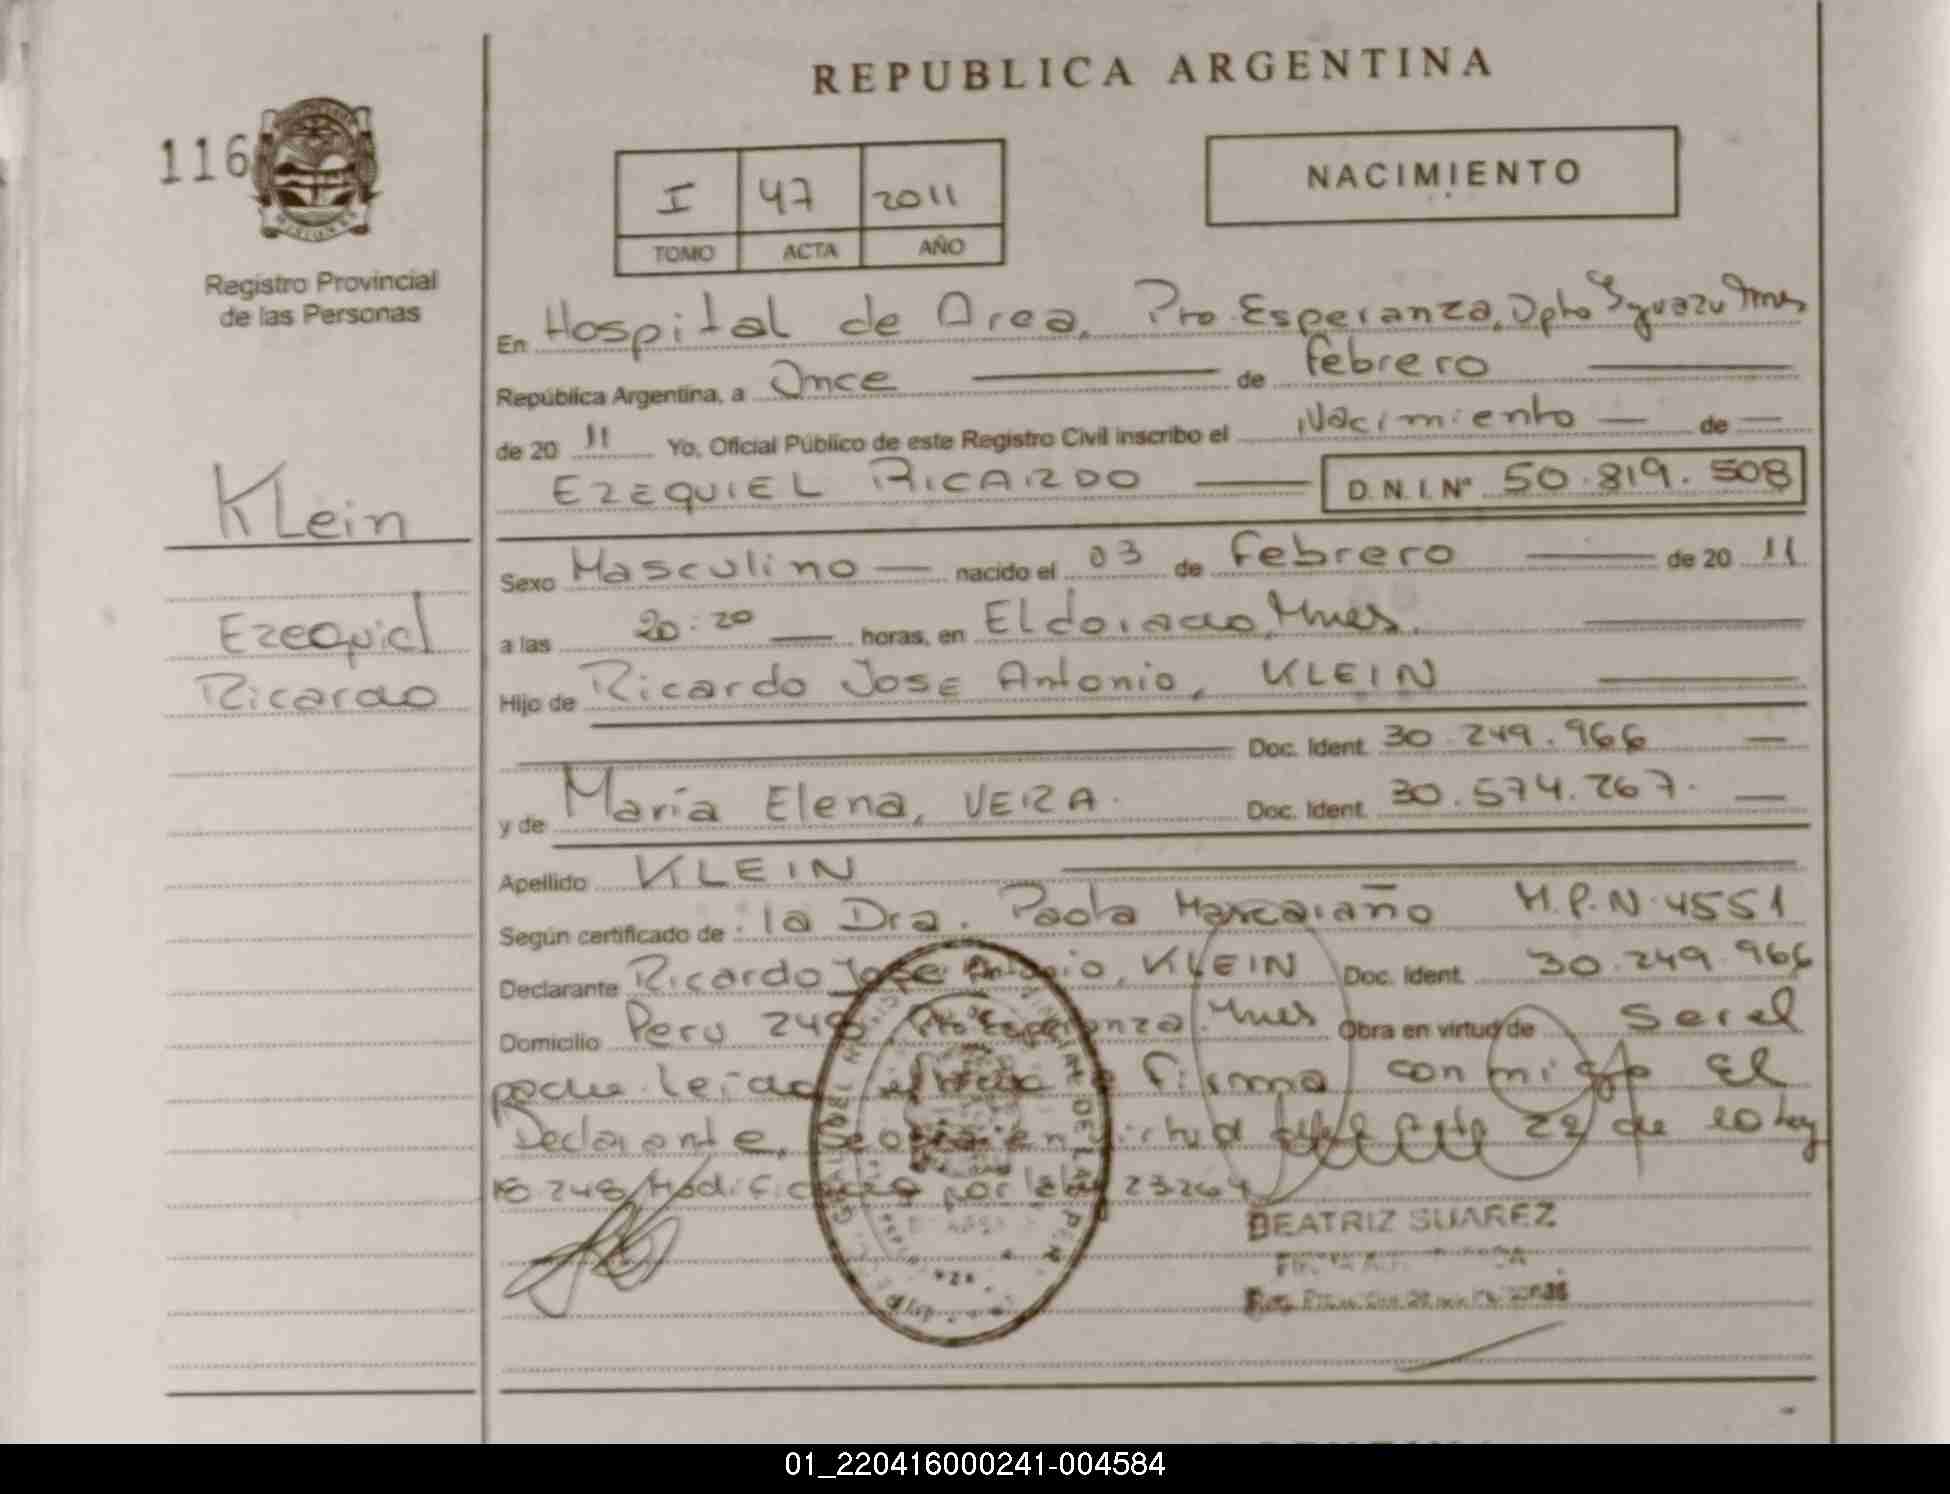 REPUBLICA ARGENTINA
116
I 47 2011
TOMO ACTA AÑO
NACIMIENTO
Registro Provincial
de las Personas
En Hospital de Area, Pto. Esperanza, Dpto Iguazu Mnes
República Argentina, a Once de febrero
de 2011 Yo, Oficial Público de este Registro Civil inscribo el Nacimiento de
EZEQUIEL RICARDO D.N.I.Nº 50.819.508
Klein
Ezequiel
Ricardo
Sexo Masculino nacido el 03 de Febrero de 2011
a las 20:20 horas, en Eldorado, Mnes.
Hijo de Ricardo Jose Antonio, KLEIN
Doc. Ident. 30.249.966
y de Maria Elena, VERA. Doc. Ident. 30.574.267.
Apellido KLEIN
Según certificado de : la Dra. Paola M.P.N. 4551
Declarante Ricardo Jose Antonio, KLEIN Doc. Ident. 30.249.966
Domicilio Peru 248 Pto Esperanza. Mnes Obra en virtud de Ser el
padre. leida firma conmigo El
Declarante, en 22 de la ley
18.248 Modificado por ley 23264
BEATRIZ SUAREZ
01_220416000241-004584